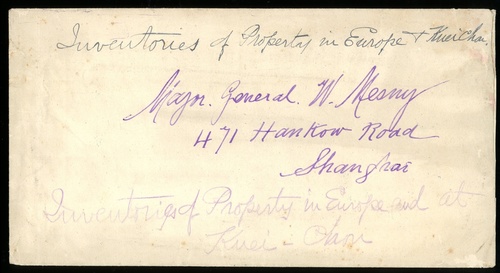 Inventories of Property in Europe + Kueichou.
Major. General. W. Mesny
471 Hankow Road
Shanghai
Inventories of Property in Europe and at
Kuei-Chou